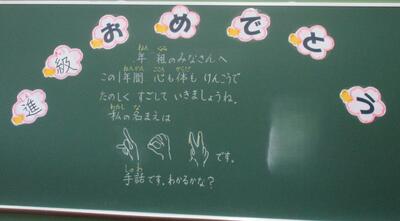 進級おめでとう
年 組のみなさんへ
ねん くみ
この1年間 心も体も けんこうで
ねんかん こころ からだ
たのしく すごして いきましょうね。
私の名まえは
わたし な
です。
手話です。わかるかな？
しゅわ